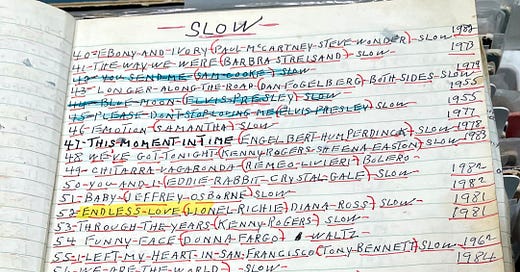 SLOW
40-EBONY-AND-IVORY (PAUL-McCARTNEY-STEVE WONDER)-SLOW 1982
41-THE WAY WE WERE (BARBRA STREISAND) SLOW 1973
42-YOU SEND ME (SAM-COOKE) SLOW
43-LONGER-ALONG-THE ROAD (DAN FOGELBERG) BOTH SIDES-SLOW 1979
44-BLUE-MOON-(ELVIS-PRESLEY) SLOW 1955
45-PLEASE-DON'T STOP LOVING ME (ELVIS PRESLEY) SLOW 1955
46-EMOTION (SAMANTHA) SLOW 1977
47-THIS MOMENT IN TIME (ENGELBERT HUMPERDINCK) SLOW 1978
48-WE'VE GOT-TONIGHT (KENNY ROGERS-SHEENA EASTON) SLOW 1983
49-CHITARRA-VAGABONDA (REMEO-LIVIERI) BOLERO-
50-YOU-AND-I-(EDDIE-RABBIT-CRYSTAL-GALE) SLOW- 1982
51-BABY-(JEFFREY-OSBORNE) SLOW 1982
52-ENDLESS-LOVE (LIONEL-RICHIE) DIANA-ROSS) SLOW- 1981
53-THROUGH-THE YEARS (KENNY ROGERS) SLOW- 1981
54 FUNNY-FACE (DONNA-FARGO) WALTZ-
55-I-LEFT-MY-HEART-IN-SAN-FRANCISCO (TONY BENNETT) SLOW 1962
WE-ARE-THE-WORLD- SLOW- 1984